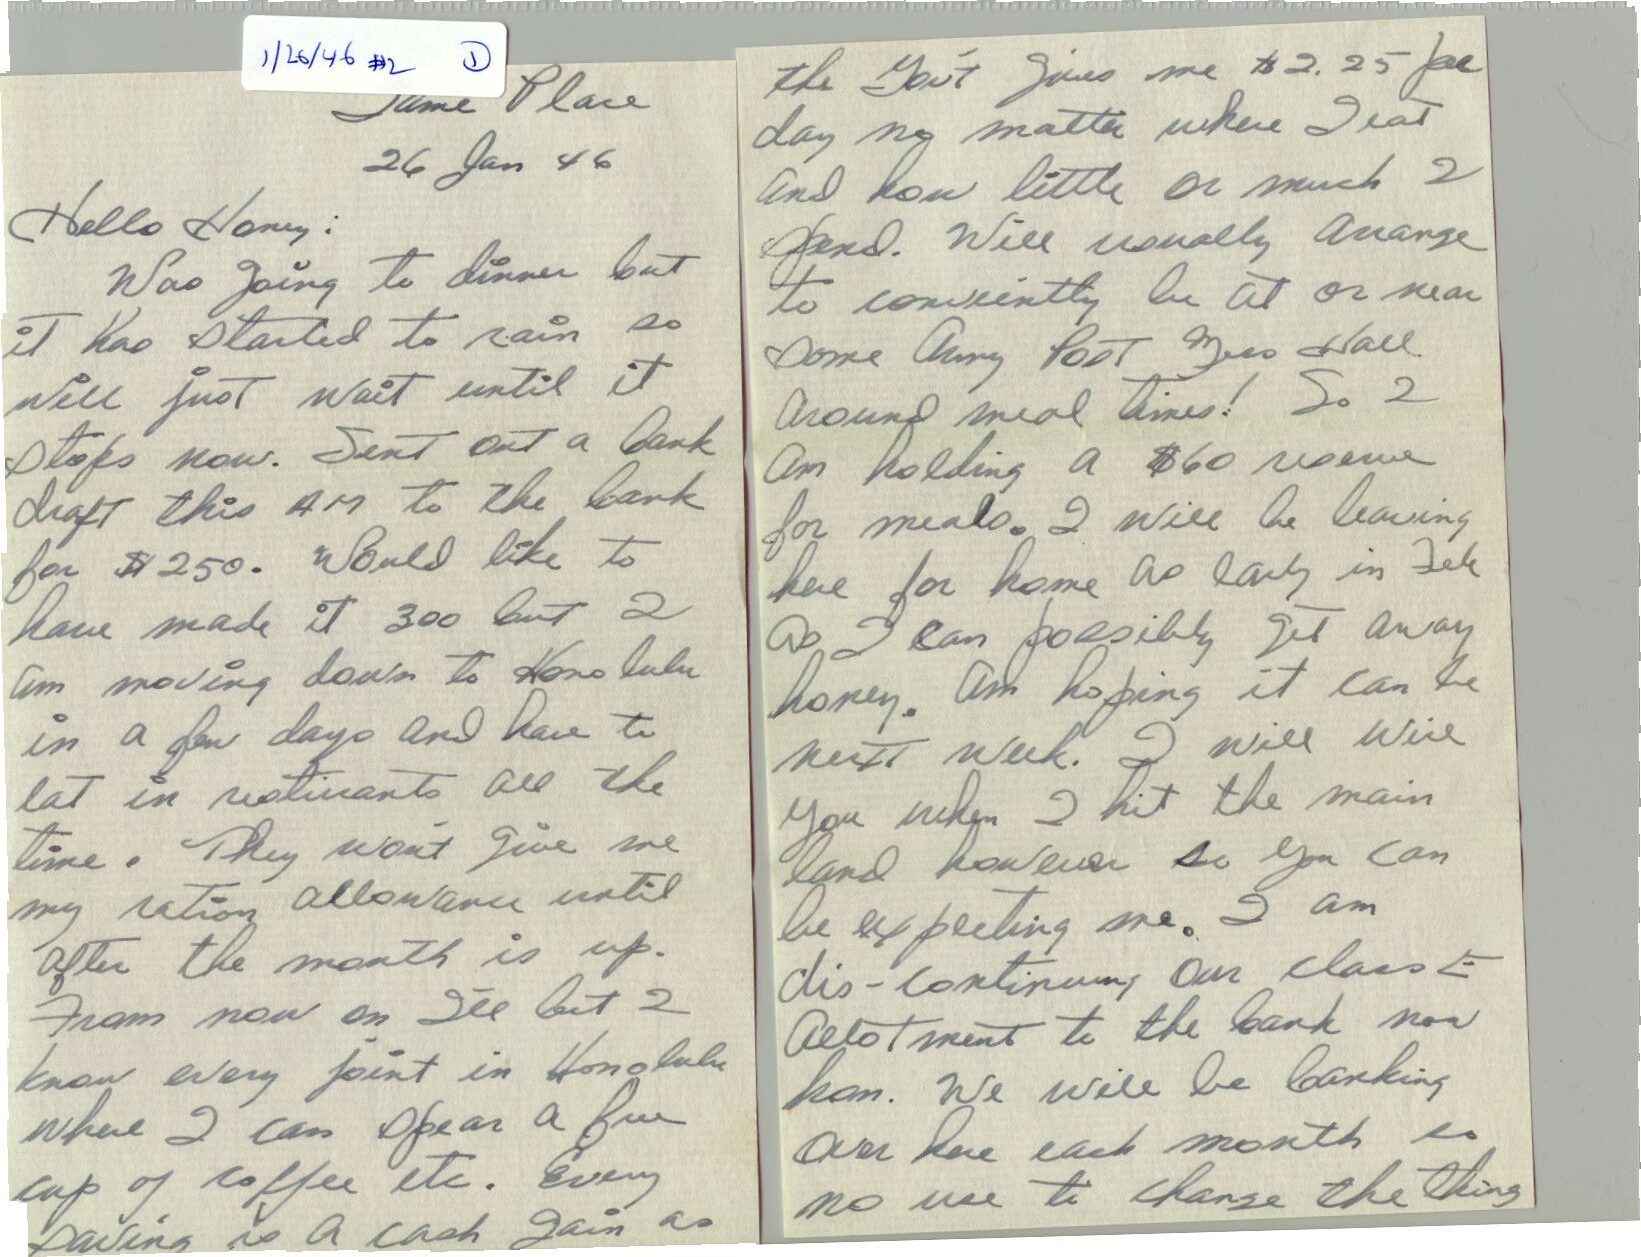 1/26/46 #2 1
Same Place
26 Jan 46
Hello Honey:
Was going to dinner but
it has started to rain so
will just wait until it
stops now. Sent out a bank
draft this AM to the bank
for $250. Would like to
have made it 300 but I
am moving down to Honolulu
in a few days and have to
eat in restiurants all the
time. They won't give me
my ration allowance until
after the month is up.
From now on I'll bet I
know every joint in Honolulu
where I can spear a free
cup of coffee etc. Every
saving is a cash gain as
the Gov't gives me $2.25 per
day no matter where I eat
and how little or much I
spend. Will usually arrange
to conviently be at or near
some Army Post Mess Hall
around meal times! So I
am holding a $60 reserve
for meals. I will be leaving
here for home as early in Feb
as I can possibly get away
honey. Am hoping it can be
next week. I will wire
you when I hit the main
land however so you can
be expecting me. I am
dis-continuing our class E
allotment to the bank now
hon. We will be banking
over here each month so
no use to change the thing